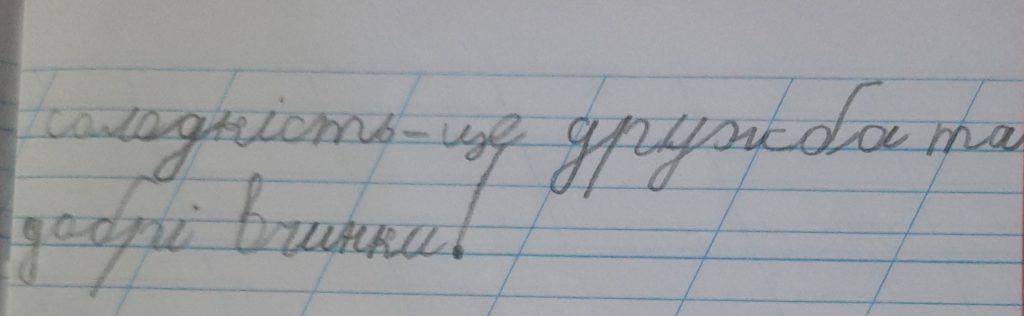 солодкість-це дружба та
добрі вчинки!